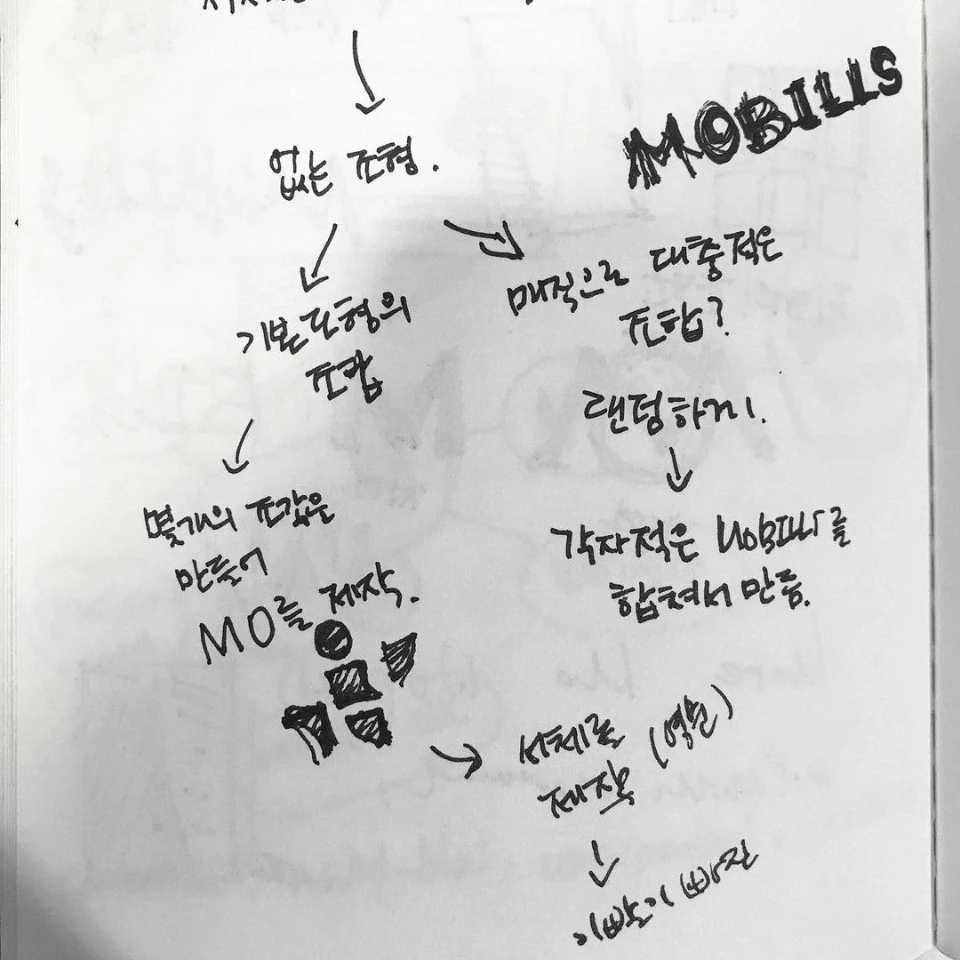 MOBILLS
없는 조형.
기본 조형의
조합
몇개의 조합을
만들어
MO를 제작.
매직으로 대충적은
조합?
랜덤하게.
각자적은 MOBILLS를
합쳐서 만듬.
서체로
제작
이빨이 빠진